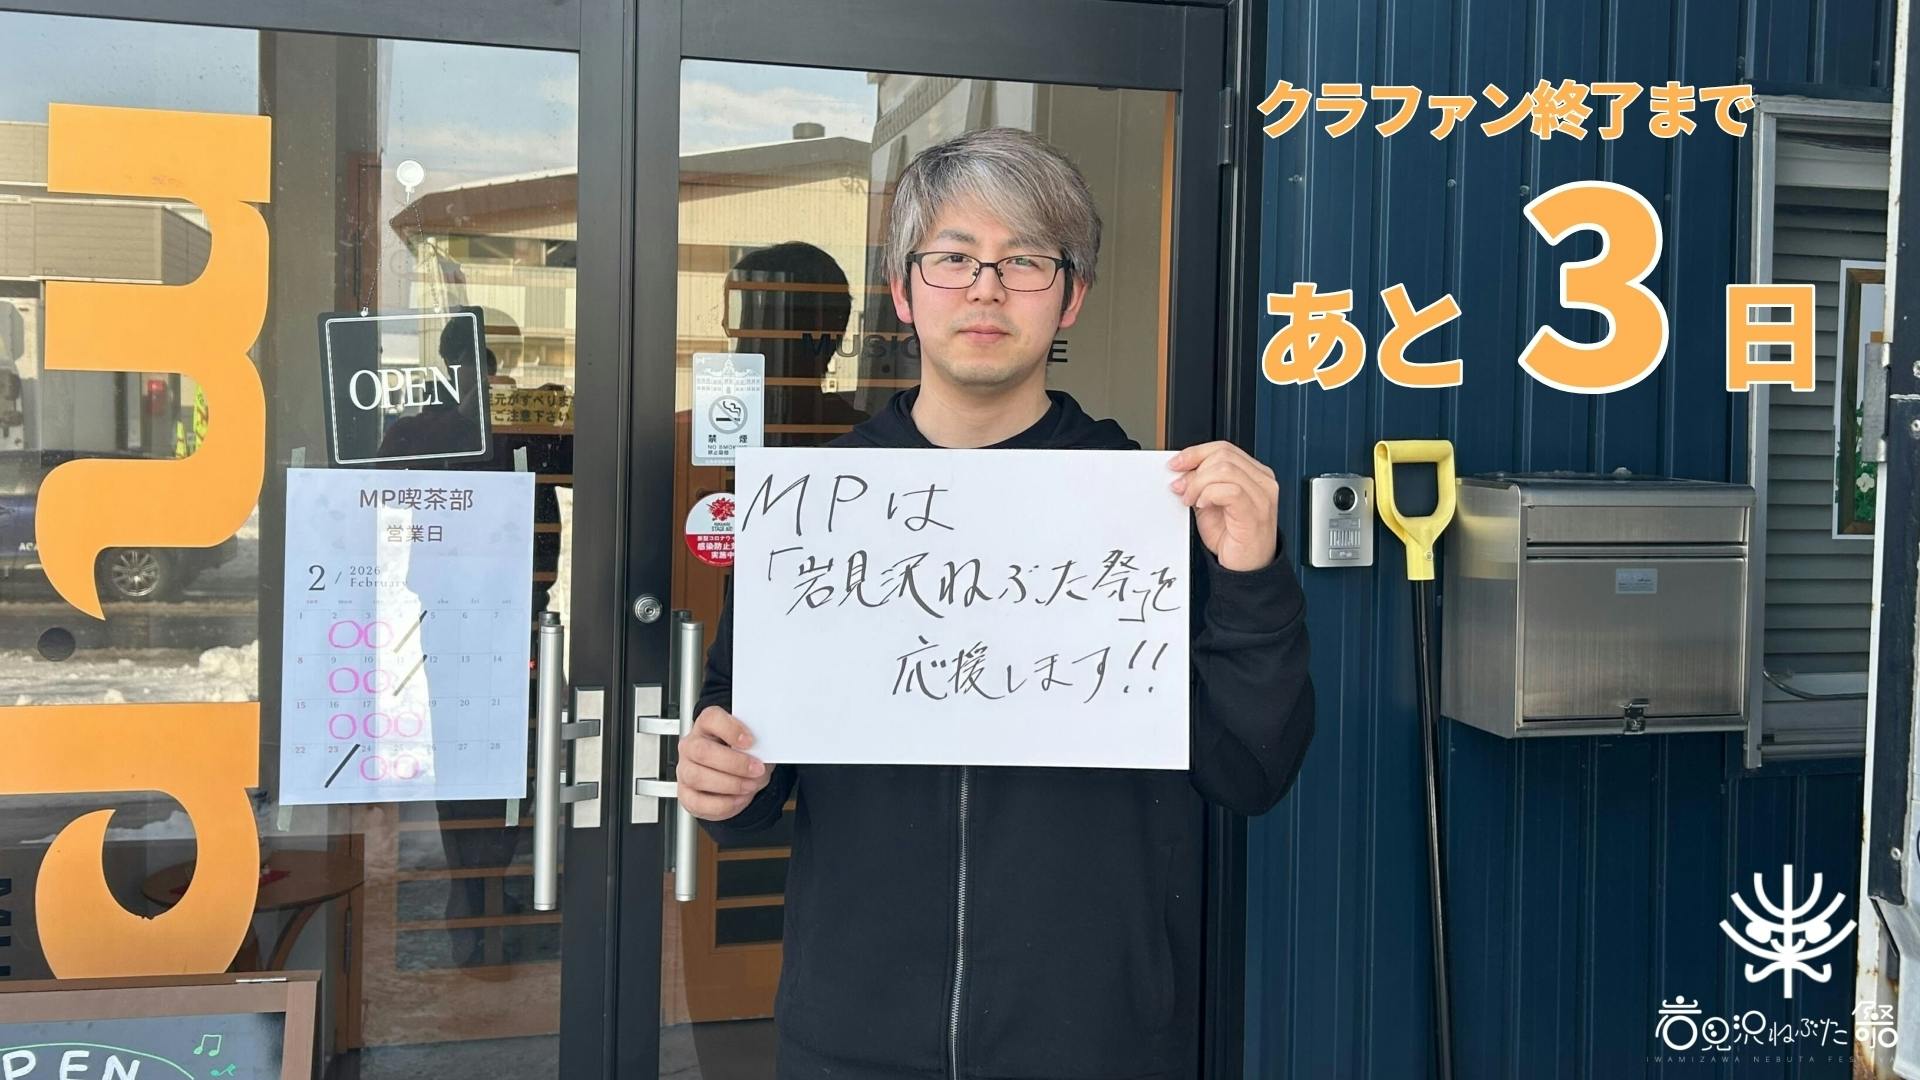 クラファン終了まで
あと 3 日
OPEN
MP喫茶部
営業日
2 / 2026
February
sun mon tue wed thu fri sat
1 2 3 4 5 6 7
8 9 10 11 12 13 14
15 16 17 18 19 20 21
22 23 24 25 26 27 28
元がすべりま
ご注意下さい
禁 煙
NO SMOKING
MUSIC
E
感染防止
実施中
MPは
「岩見沢ねぶた祭」を
応援します!!
PEN
岩見沢ねぶた祭
IWAMIZAWA NEBUTA FESTIVAL